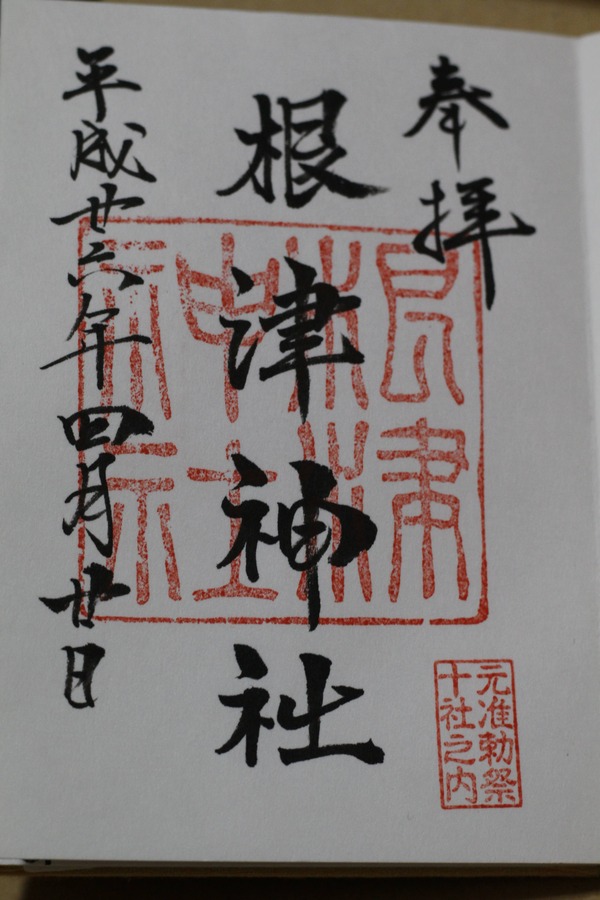 奉拝
根津神社
平成廿六年四月廿日
根津神社
元准勅祭
十社之内